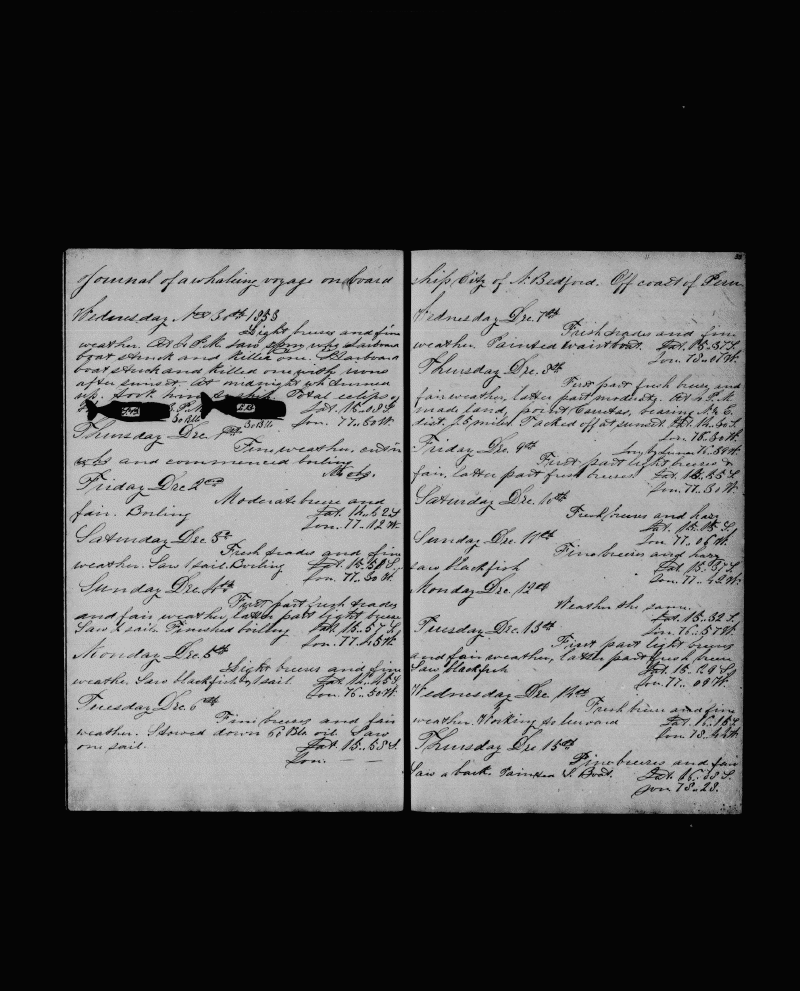 Journal of a whaling voyage on board
Wednesday Nov 30th 1853
Light breeze and fine
weather. At 2 P.M. saw spm whs Larboard
boat struck and killed one. Starboard
boat struck and killed one with irons
after sunset. At midnight
up. Took him Total eclips of
P.M.
30 Bbls 30 Bbls
Lat. 15..08 S.
Lon. 77..50 W.
Thursday Dec. 1st
Fine weather, cut in
whs and commenced boiling
Friday Dec 2nd
Moderate breeze and
fair. Boiling Lat. 14..52 S.
Lon. 77..12 W.
Saturday Dec. 3d
Fresh trades and fine
weather. Saw 1 sail. Boiling Lat. 15..50 S.
Lon. 77..30 W.
Sunday Dec. 4th
First part fresh trades
and fair weather, latter part light breeze
Saw 2 sail. Finished boiling Lat. 15..57 S.
Lon. 77..45 W.
Monday Dec. 5th
Light breezes and fine
weather. Saw blackfish, 1 sail Lat. 14..45 S.
Lon. 76..50 W.
Tuesday Dec. 6th
Fine breezes and fair
weather. Stowed down 65 Bbls oil. Saw
one sail. Lat. 15..58 S.
Lon. — —
ship City of N. Bedford. Off coast of Peru
Wednesday Dec. 7th
Fresh trades and fine
weather. Painted waist boat. Lat. 15..37 S.
Lon. 78..01 W.
Thursday Dec. 8th
First part fresh breeze and
fair weather, latter part modest. At 2 P.M.
made land, point Carretas, bearing N. E.
dist. 25 miles Tacked off at sunset Lat. 14..30 S.
Lon. 76..30 W.
Friday Dec. 9th
First part light breezes &
fair, latter part fresh breezes Lat. 15..55 S.
Lon. 77..30 W.
Saturday Dec. 10th
Fresh breezes and hazy
Lat. 15..15 S.
Lon. 77..06 W.
Sunday Dec. 11th
Fine breezes and hazy
saw blackfish Lat. 15..37 S.
Lon. 77..42 W.
Monday Dec. 12th
Weather the same.
Lat. 15..32 S.
Lon. 76..57 W.
Tuesday Dec. 13th
First part light breezes
and fair weather, latter part fresh breeze
Saw blackfish Lat. 15..29 S.
Lon. 77..09 W.
Wednesday Dec. 14th
Fresh breeze and fine
weather. Working to leeward Lat. 16..16 S.
Lon. 78..44 W.
Thursday Dec 15th
Fine breezes and fair
Saw a bark. Painted S. Boat. Lat. 16..38 S.
Lon. 78..28.